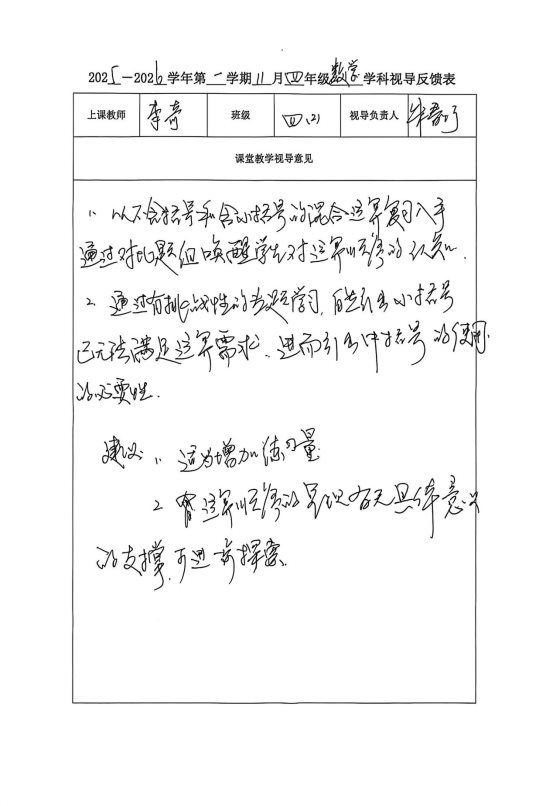 2025-2026学年第一学期11月四年级数学学科视导反馈表
上课教师 李 班级 四(2) 视导负责人
课堂教学视导意见
1. 以不含括号和含小括号的混合运算复习入手
通过对比题组唤醒学生对运算顺序的认知.
2. 通过有挑战性的问题学习, 自然引出小括号
已无法满足运算需求, 进而引出中括号的使用
的必要性.
建议: 1. 适当增加练习量
2. 运算顺序的 有无具体意义
的支撑, 可进一步探索.